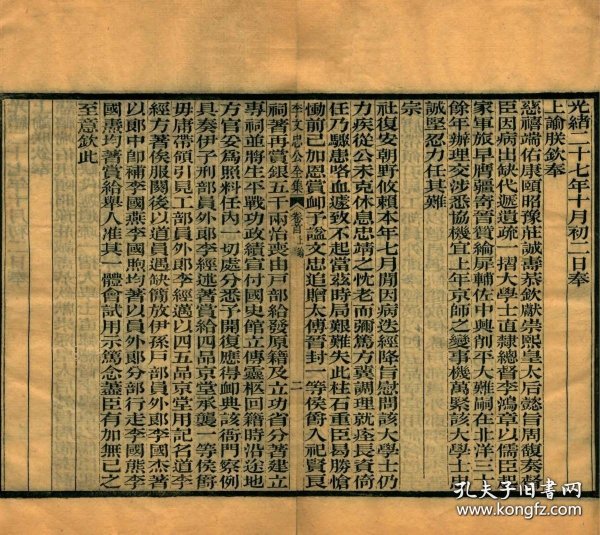 光緒二十七年十月初二日奉
上諭朕欽奉
慈禧端佑康頤昭豫莊誠壽恭欽獻崇熙皇太后懿旨周馥奏督
臣因病出缺代遞遺疏一摺大學士直隸總督李鴻章以儒臣起
家軍旅早膺疆寄晉贊綸扉輔佐中興削平大難嗣在北洋三十
餘年辦理交涉悉協機宜上年京師之變事機萬緊該大學士忠
誠堅忍力任其難
宗
社復安朝野攸賴本年七月間因病迭經降旨慰問該大學士仍
力疾從公未克休息忠靖之忱老而彌篤方冀調理就痊長資倚
任乃驟患咯血遽致不起當茲時局艱難失此柱石重臣曷勝愴
慟前已加恩賞卹予諡文忠追贈太傅晉封一等侯爵入祀賢良
李文忠公全集
卷首
二
祠著再賞銀五千兩治喪由戶部給發原籍及立功省分著建立
專祠並將生平戰功政績宣付國史館立傳靈柩回籍時沿途地
方官妥爲照料任內一切處分悉予開復應得卹典該衙門察例
具奏伊子刑部員外郎李經述著賞給四品京堂承襲一等侯爵
毋庸帶領引見工部員外郎李經邁以四五品京堂用記名道李
經方著俟服闋後以道員遇缺簡放伊孫戶部員外郎李國杰著
以郎中卽補李國燕李國煦均著以員外郎分部行走李國熊李
國燾均著賞給舉人准其一體會試用示篤念藎臣有加無已之
至意欽此
孔夫子旧書网
www.kongfz.com